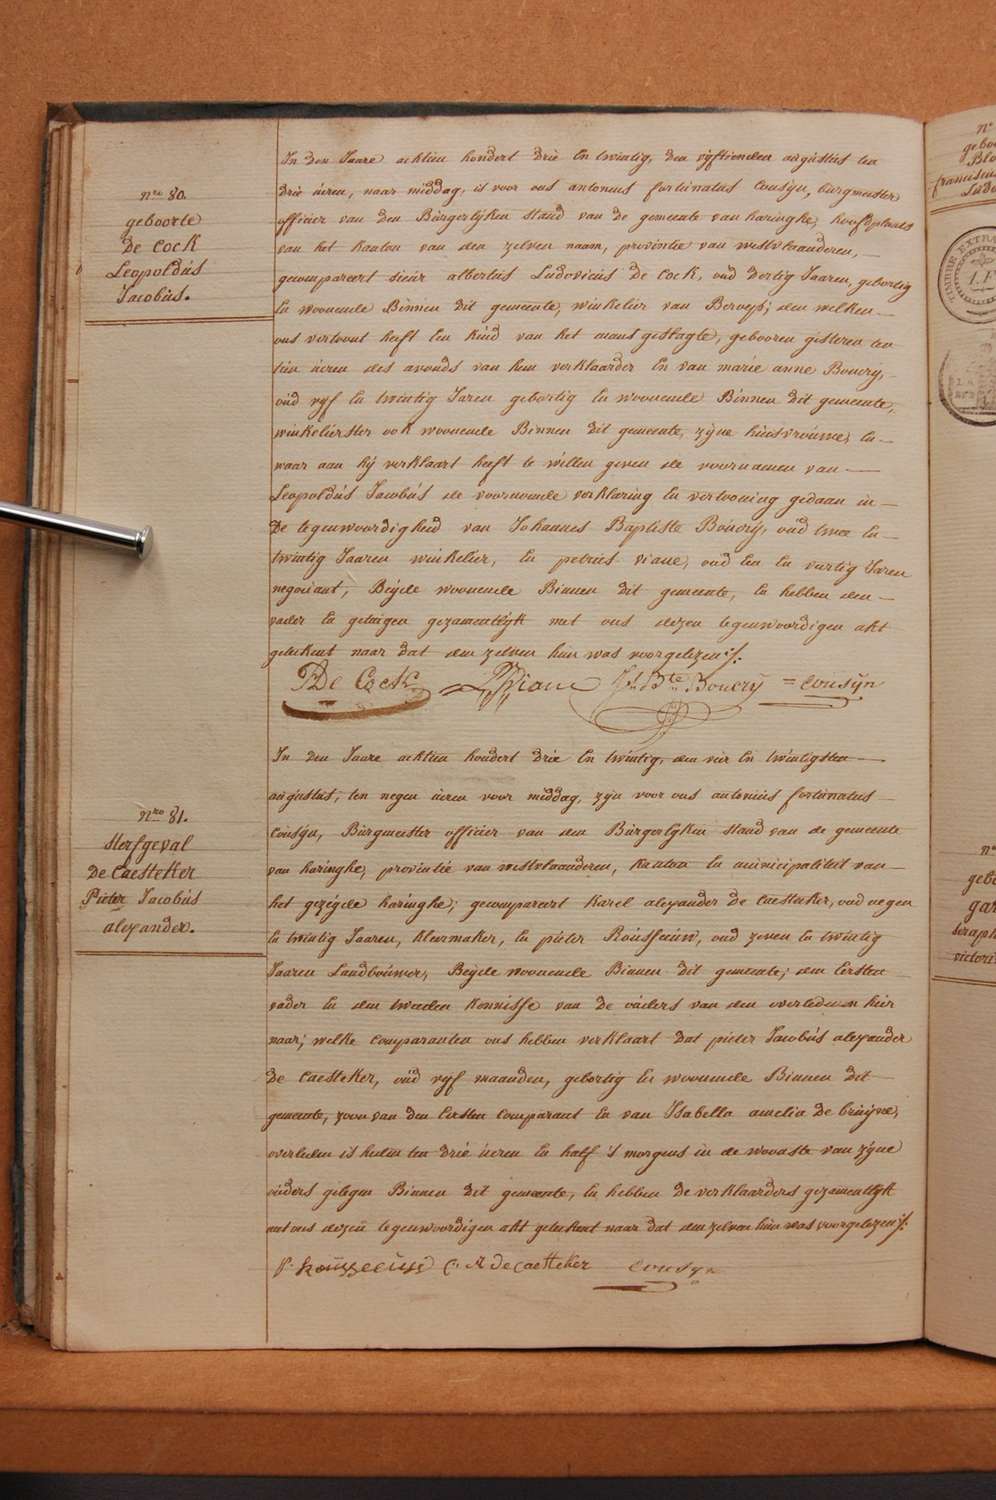 nro 80.
geboorte
De Cock
Leopoldus
Jacobus.
In den Jaare achtien hondert drie En twintig, den vyftienden augustus ten
drie ùeren, naar middag, is voor ons antonius fortunatus Cousyn, burgmeester
officier van den Bùrgerlyken stand van de gemeente van haringhe, hoofdplaats
van het kanton van den zelven naam, provintie van westvlaanderen,
gecompareert sieur albertus Ludovicus De Cock, oùd dertig Jaaren, gebortig
En woonende Binnen dit gemeente, winkelier van Beroep; den welken
ons vertoont heeft Een kind van het geslagte, gebooren gisteren ten
tien ùeren des avonds van hem verklaarder En van marie anne Boucry,
oùd vyf En twintig Jaren gebortig En woonende Binnen dit gemeente,
winkelierster ook woonende Binnen dit gemeente, zÿne huisvrouwe, En
waar aan hij verklaart heeft te willen geven de voornamen van
Leopoldùs Jacobùs de voornoemde verklaring En vertooning gedaan in
De tegenwoordigheid van Johannes Baptiste Boucrÿ, oùd twee En
twintig Jaaren winkelier, En petrus viane, oud Een En veertig Jaren
negoriant, Beÿde woonende Binnen dit gemeente, En hebben den
vader En getuigen gezamentlÿk met ons dezen tegenwoordigen akt
geteekent naar dat den zelven hun was voorgelezen ·/.
De Cock Viane Bte Boucrÿ = Cousÿn
nro 81.
sterfgeval
De Caesteker
Pieter Jacobùs
alexander.
In den Jaare achtien hondert drie En twintig, den vier En twintigsten
augustus, ten negen ùeren voor middag, zyn voor ons antonius fortunatus
Cousyn, Bùrgmeester officier van den Bùrgerlyken stand van de gemeente
van haringhe, provintie van westvlaanderen, kanton En municipaliteit van
het gezegde haringhe; gecompareert Karel alexander De Caesteker, oud negen
En twintig Jaaren, kleermaker, En pieter Roùsseeùw, oud zeven En twintig
Jaaren Landboùwer, Beÿde woonende Binnen dit gemeente; den Eersten
vader En den tweeden kennisse van de oùders van den overledenen hier
naar; welke comparanten ons hebben verklaart dat pieter Jacobùs alexander
De Caesteker, oùd vyf maanden, gebortig En woonende Binnen dit
gemeente, zoon van den Eersten comparant En van Isabella amelia De bruÿne,
overleden is heden ten drie ùeren En half 's morgens in de woonste van zÿne
oùders gelegen Binnen dit gemeente, En hebben de verklaarders gezamentlÿk
met ons dezen tegenwoordigen akt geteekent naar dat den zelven hun was voorgelezen ·/.
p. Roùsseeùw C. A de Caesteker Cousyn
nro
geboo
Blo
franciscus
Ludo
TIMBRE EXTRA
nro
gebo
gar
seraph
victori